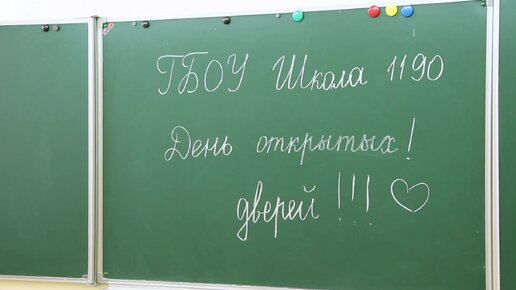 ГБОУ Школа 1190
День открытых!
дверей!!! ♡